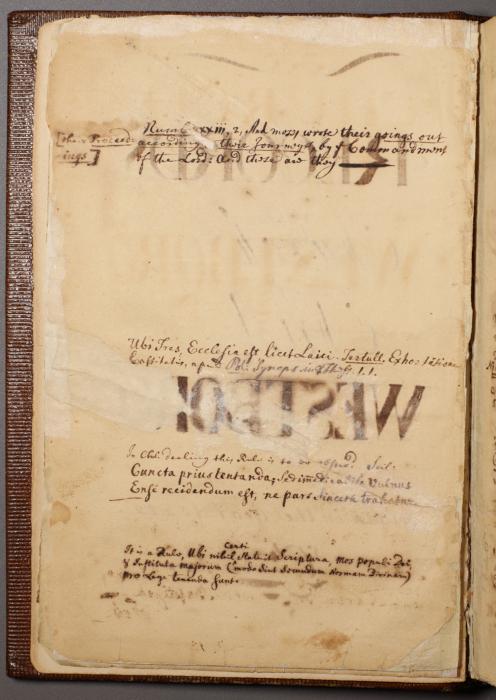 Numb xxiii, 2, And moses wrote their goings out
[their Proceed: according to their journeys by ye Commandment
ings] of the Lord: And these are they
Ubi Tres, Ecclesia est, licet Laici. Tertull. Exhortatione
Castitatis, apud Pol. Synops in
WESTBOR
In Chh dealing this Rule is to be Scil.
Cuncta prius tentanda; Sed immedicabile Vulnus
Ense recidendum est, ne pars sincera trahatur
It is a Rule, Ubi nihil certi Statuit Scriptura, mos populi Dei,
& Instituta majorum (modo sint secundum Normam Divinam)
pro Lege tenenda sunt.